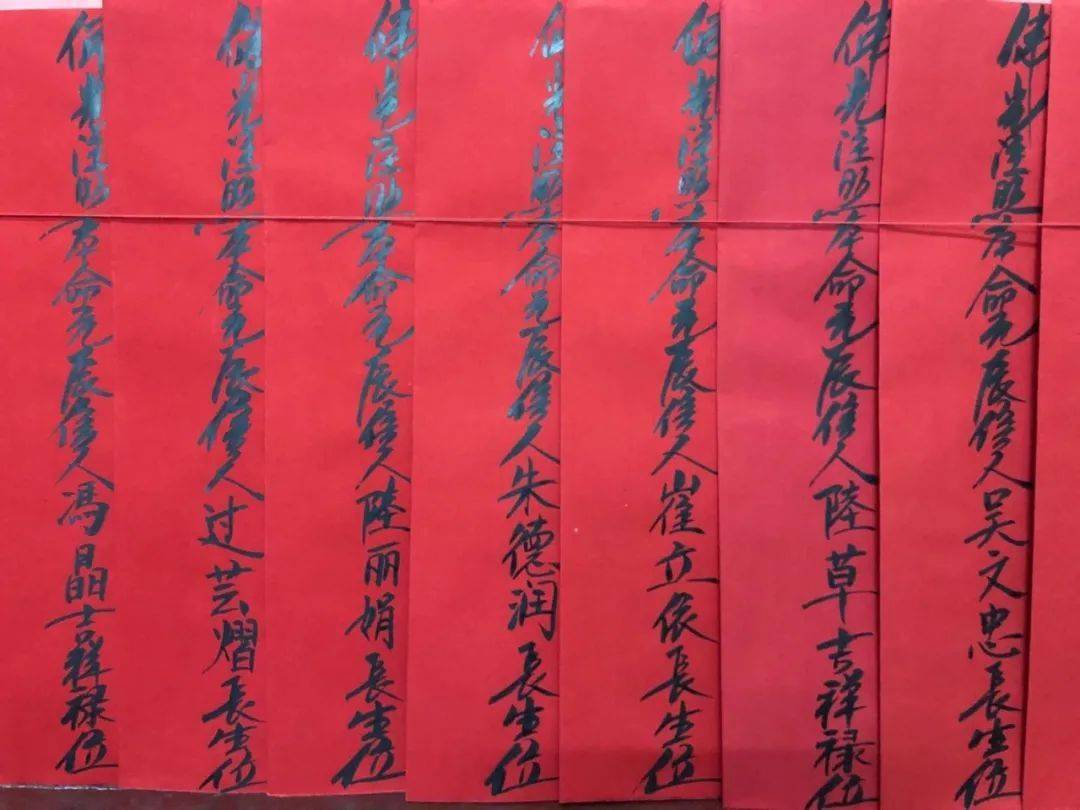 佛光注照本命元辰信人吴文忠長生位
佛光注照本命元辰信人陸草吉祥禄位
佛光注照本命元辰信人崔立依長生位
佛光注照本命元辰信人朱德润長生位
佛光注照本命元辰信人陸丽娟長生位
佛光注照本命元辰信人过芸熠長生位
佛光注照本命元辰信人馮晶吉祥禄位